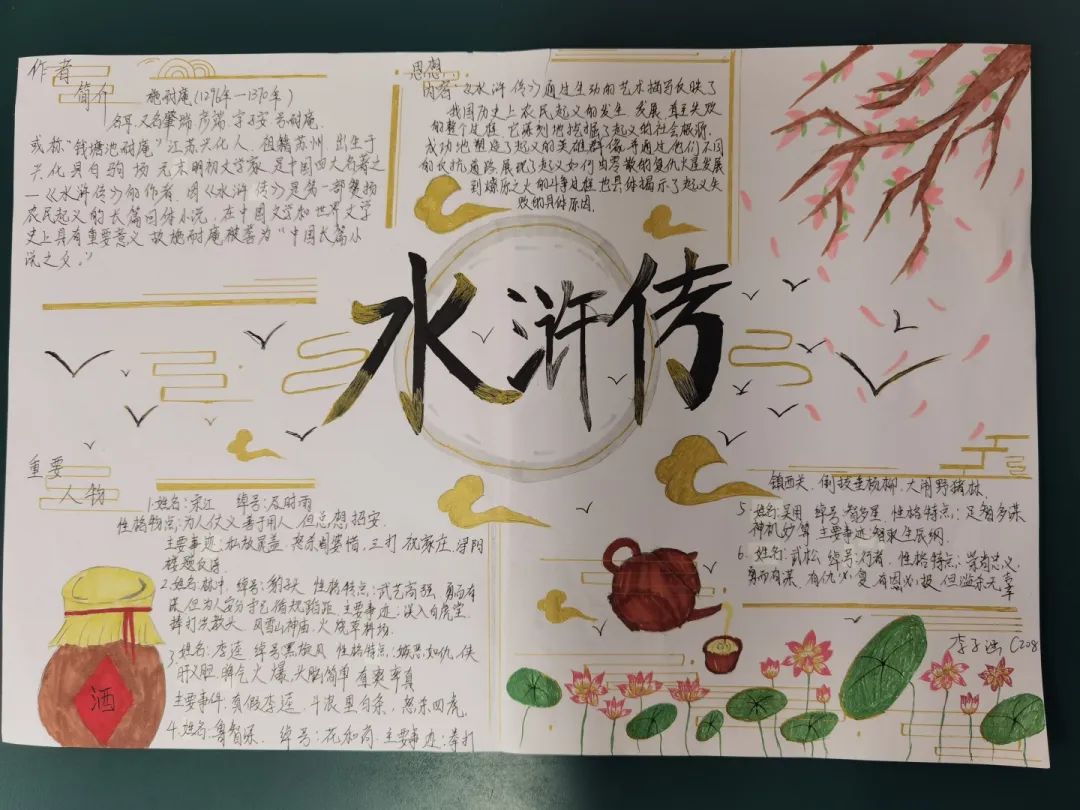 作者
简介
施耐庵(1296年—1370年)
名耳,又名肇瑞,彦端,字子安,号耐庵,
或称"钱塘施耐庵"江苏兴化人,祖籍苏州,出生于
兴化县白驹场,元末明初文学家,是中国四大名著之
一《水浒传》的作者,因《水浒传》是第一部赞扬
农民起义的长篇回体小说,在中国文学和世界文学
史上具有重要意义,故施耐庵被誉为"中国长篇小
说之父。"
思想
内容:《水浒传》通过生动的艺术描写反映了
我国历史上农民起义的发生、发展直至失败
的整个过程,它深刻地挖掘了起义的社会根源,
成功地塑造了起义的英雄群像,并通过他们不同
的反抗道路展现了起义如何由零散的复仇火星发展
到燎原之火的斗争过程,也具体揭示了起义失
败的具体原因.
水浒传
重要
人物
1.姓名:宋江 绰号:及时雨
性格特点:为人仗义,善于用人,但总想招安.
主要事迹:私放晁盖、怒杀阎婆惜,三打祝家庄,浔阳
楼题反诗
2.姓名:林冲,绰号:豹子头 性格特点:武艺高强,勇而有
谋,但为人安分守己,循规蹈距,主要事迹:误入白虎堂,
棒打洪教头,风雪山神庙,火烧草料场.
3.姓名:李逵 绰号:黑旋风 性格特点:嫉恶如仇,侠
肝义胆,脾气火爆,头脑简单,直率
主要事件:真假李逵,斗浪里白条,怒杀四虎,
4.姓名:鲁智深. 绰号:花和尚.主要事迹:拳打
镇西关.倒拔垂杨柳,大闹野猪林.
5.姓名:吴用 绰号:智多星,性格特点:足智多谋
神机妙算 主要事迹:智取生辰纲.
6.姓名:武松,绰号:行者,性格特点:崇尚忠义,
勇而有谋,有仇必复,有恩必报,但滥杀无辜
酒
李子涵 C208